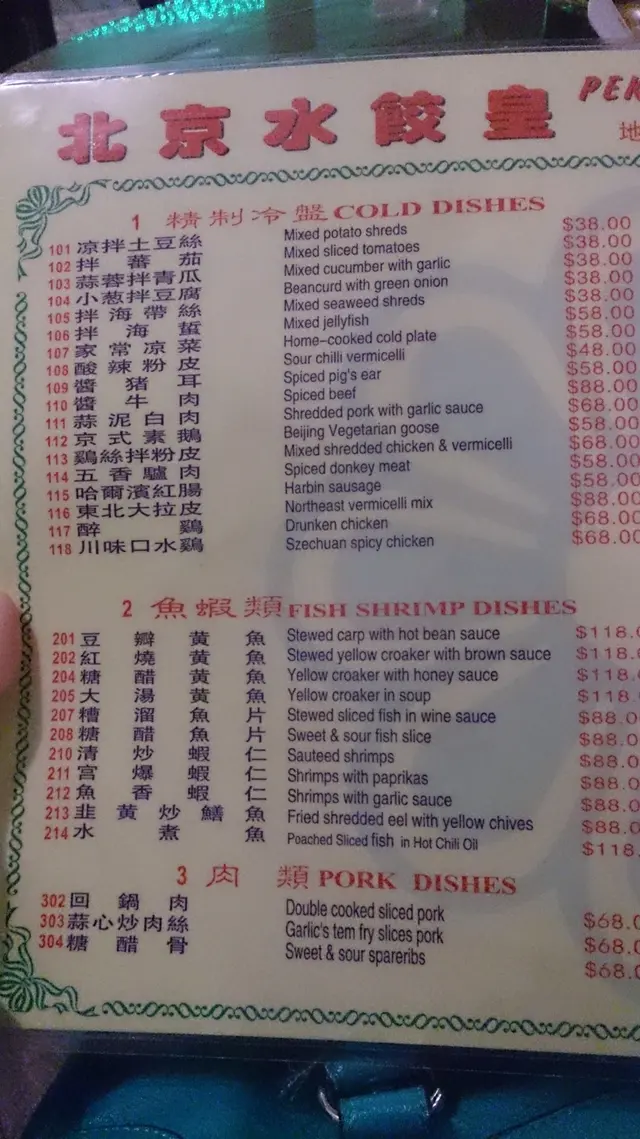 北京水餃皇 PEK
地
1 精制冷盤 COLD DISHES
101 凉拌土豆絲 Mixed potato shreds $38.00
102 拌蕃茄 Mixed sliced tomatoes $38.00
103 蒜蓉拌青瓜 Mixed cucumber with garlic $38.00
104 小葱拌豆腐 Beancurd with green onion $38.00
105 拌海帶絲 Mixed seaweed shreds $38.00
106 拌海蜇 Mixed jellyfish $58.00
107 家常凉菜 Home-cooked cold plate $58.00
108 酸辣粉皮 Sour chilli vermicelli $48.00
109 醬豬耳 Spiced pig's ear $58.00
110 醬牛肉 Spiced beef $88.00
111 蒜泥白肉 Shredded pork with garlic sauce $68.00
112 京式素鵝 Beijing Vegetarian goose $58.00
113 鷄絲拌粉皮 Mixed shredded chicken & vermicelli $68.00
114 五香驢肉 Spiced donkey meat $58.00
115 哈爾濱紅腸 Harbin sausage $58.00
116 東北大拉皮 Northeast vermicelli mix $88.00
117 醉鷄 Drunken chicken $68.00
118 川味口水鷄 Szechuan spicy chicken $68.00
2 魚蝦類 FISH SHRIMP DISHES
201 豆瓣黄魚 Stewed carp with hot bean sauce $118.0
202 紅燒黄魚 Stewed yellow croaker with brown sauce $118.
204 糖醋黄魚 Yellow croaker with honey sauce $118.
205 大湯黄魚 Yellow croaker in soup $118.
207 糟溜魚片 Stewed sliced fish in wine sauce $88.0
208 糖醋魚片 Sweet & sour fish slice $88.0
210 清炒蝦仁 Sauteed shrimps $88.0
211 宫爆蝦仁 Shrimps with paprikas $88.0
212 魚香蝦仁 Shrimps with garlic sauce $88.0
213 韭黄炒鱔魚 Fried shredded eel with yellow chives $88.0
214 水煮魚 Poached Sliced fish in Hot Chili Oil $118.
3 肉類 PORK DISHES
302 回鍋肉 Double cooked sliced pork $68.0
303 蒜心炒肉絲 Garlic's tem fry slices pork $68.0
304 糖醋骨 Sweet & sour spareribs $68.0